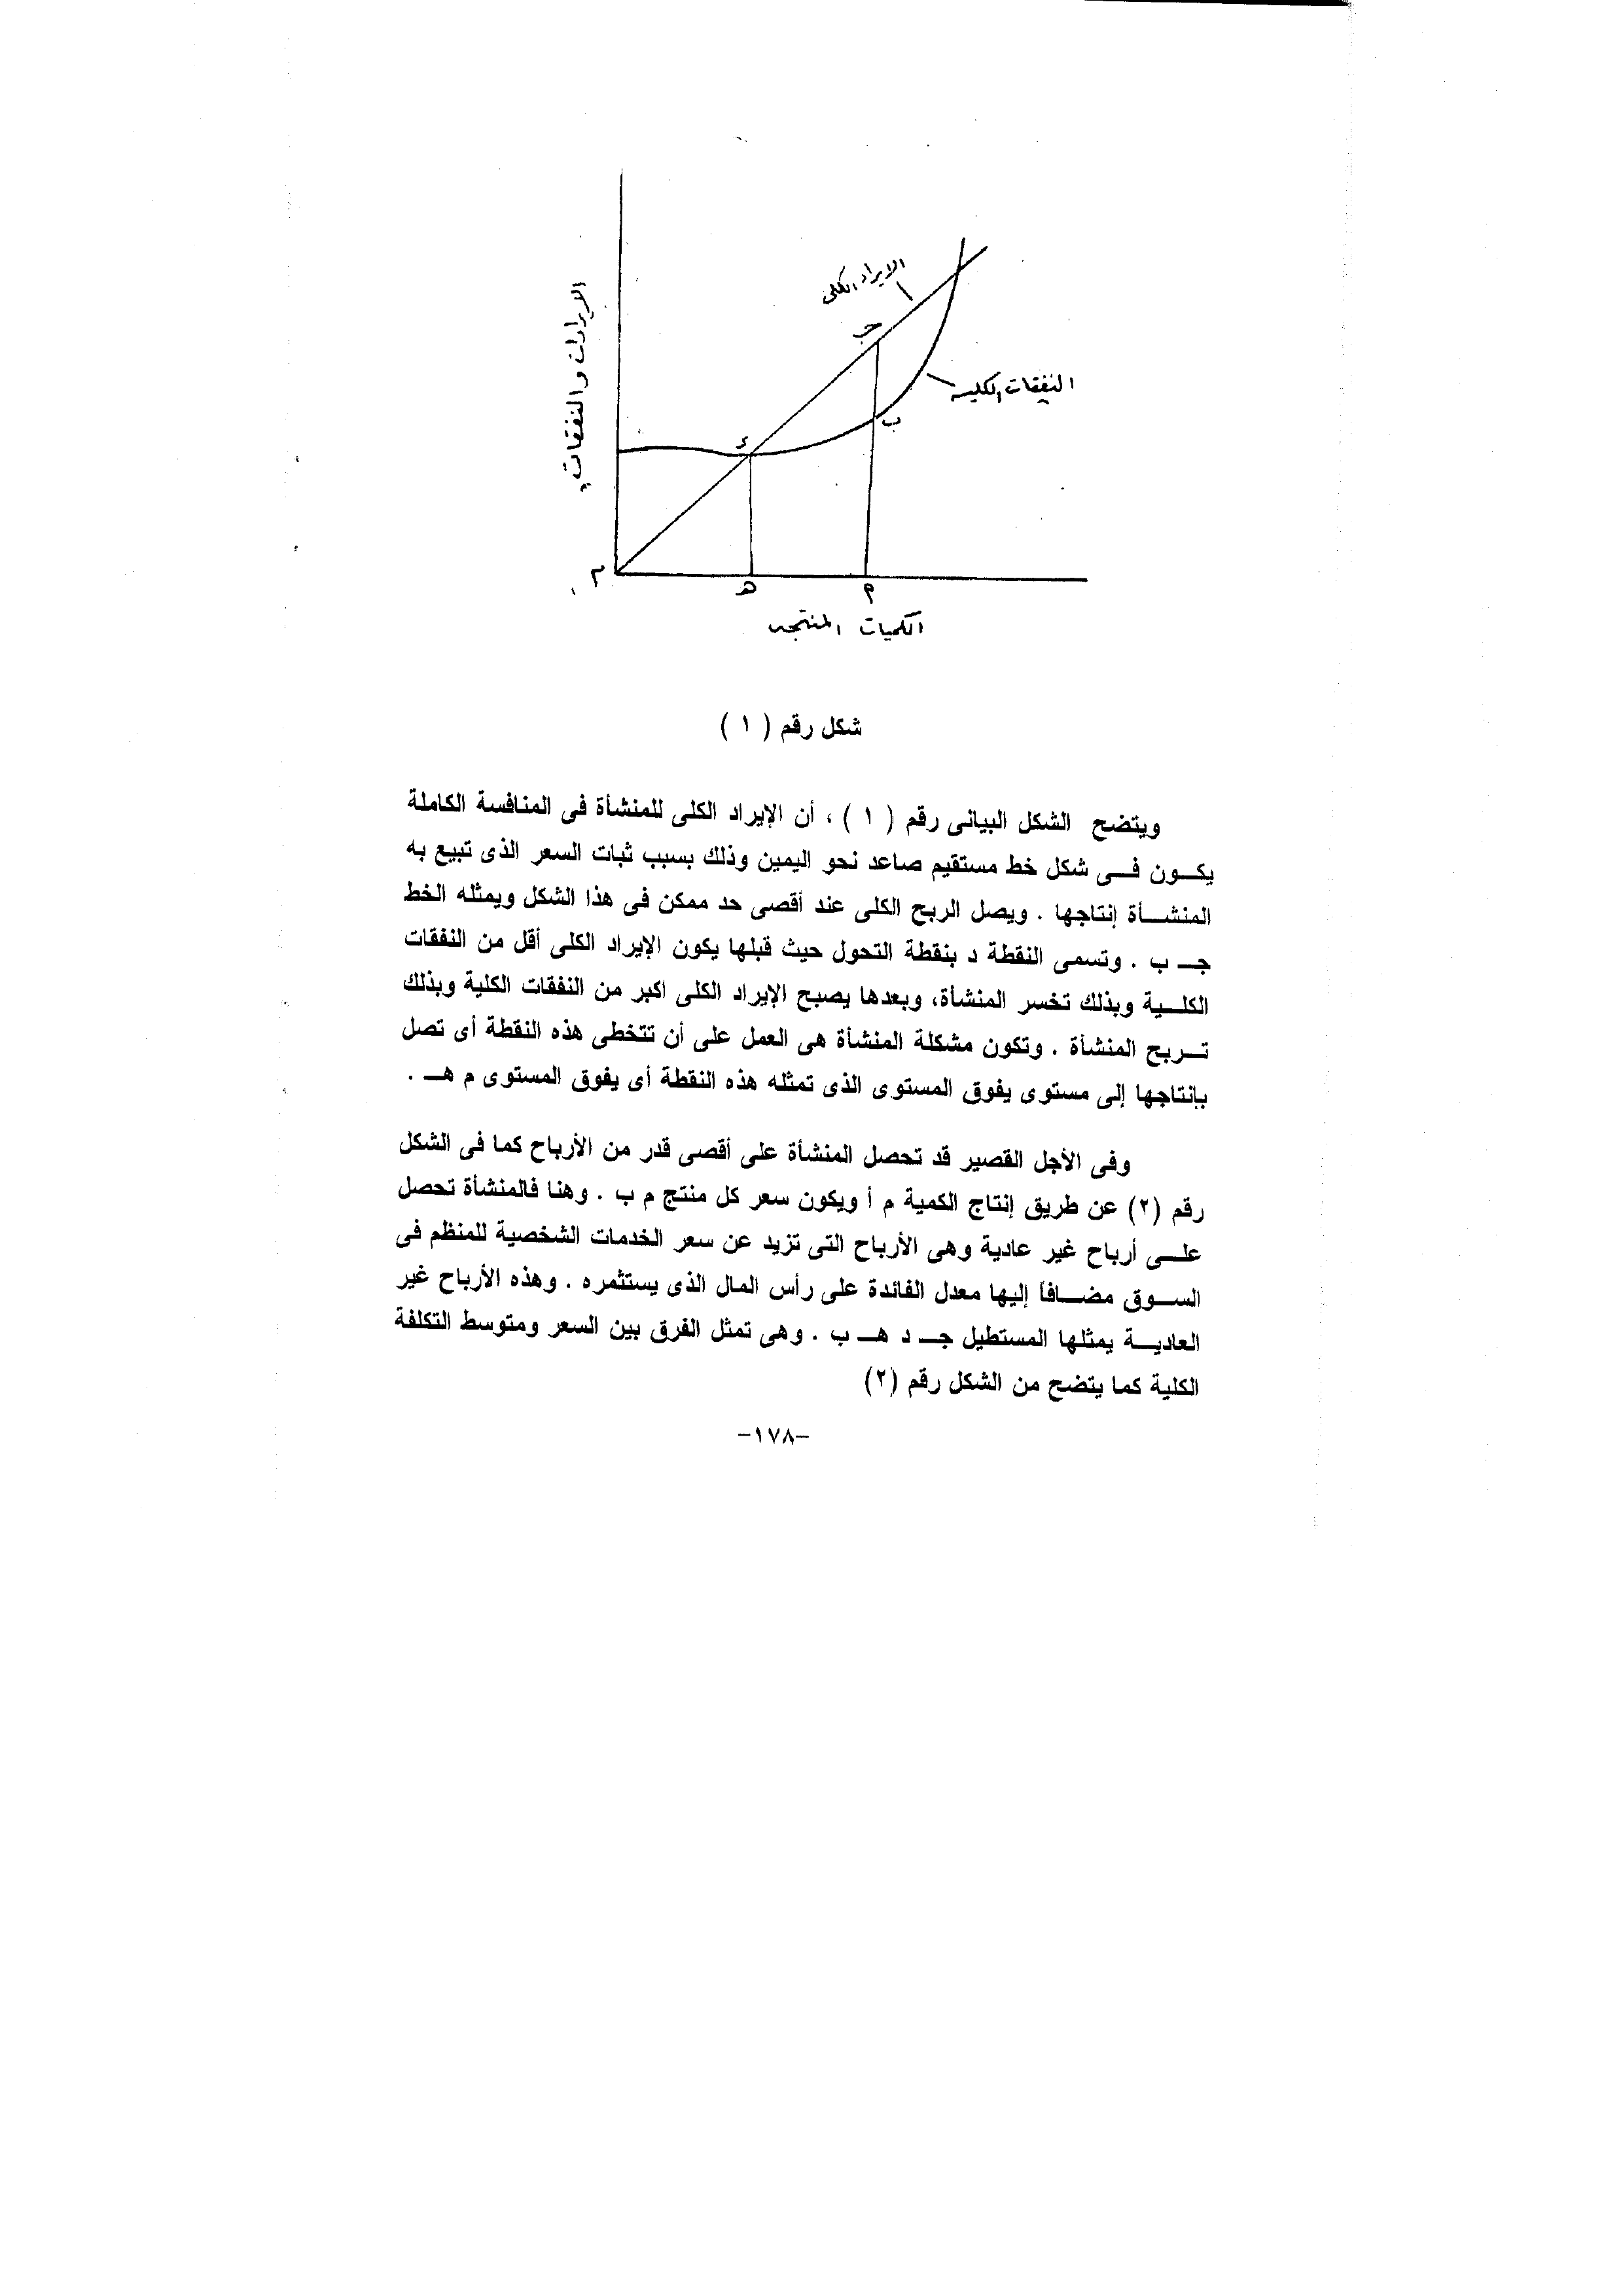 الايراد الكلى
جـ
الايرادات والنفقات
النفقات الكليه
ب
د
م
هـ
أ
الكميات المنتجه
شكل رقم ( ١ )
ويتضح الشكل البيانى رقم ( ١ ) ، أن الإيراد الكلى للمنشأة فى المنافسة الكاملة
يكـون فـى شكل خط مستقيم صاعد نحو اليمين وذلك بسبب ثبات السعر الذى تبيع به
المنشـأة إنتاجها . ويصل الربح الكلى عند أقصى حد ممكن فى هذا الشكل ويمثله الخط
جـ ب . وتسمى النقطة د بنقطة التحول حيث قبلها يكون الإيراد الكلى أقل من النفقات
الكلـية وبذلك تخسر المنشأة، وبعدها يصبح الإيراد الكلى اكبر من النفقات الكلية وبذلك
تـربح المنشأة . وتكون مشكلة المنشأة هى العمل على أن تتخطى هذه النقطة أى تصل
بإنتاجها إلى مستوى يفوق المستوى الذى تمثله هذه النقطة أى يفوق المستوى م هـ .
وفى الأجل القصير قد تحصل المنشأة على أقصى قدر من الأرباح كما فى الشكل
رقم (٢) عن طريق إنتاج الكمية م أ ويكون سعر كل منتج م ب . وهنا فالمنشأة تحصل
علـى أرباح غير عادية وهى الأرباح التى تزيد عن سعر الخدمات الشخصية للمنظم فى
السـوق مضـافاً إليها معدل الفائدة على رأس المال الذى يستثمره . وهذه الأرباح غير
العاديـة يمثلها المستطيل جـ د هـ ب . وهى تمثل الفرق بين السعر ومتوسط التكلفة
الكلية كما يتضح من الشكل رقم (٢)
-١٧٨-